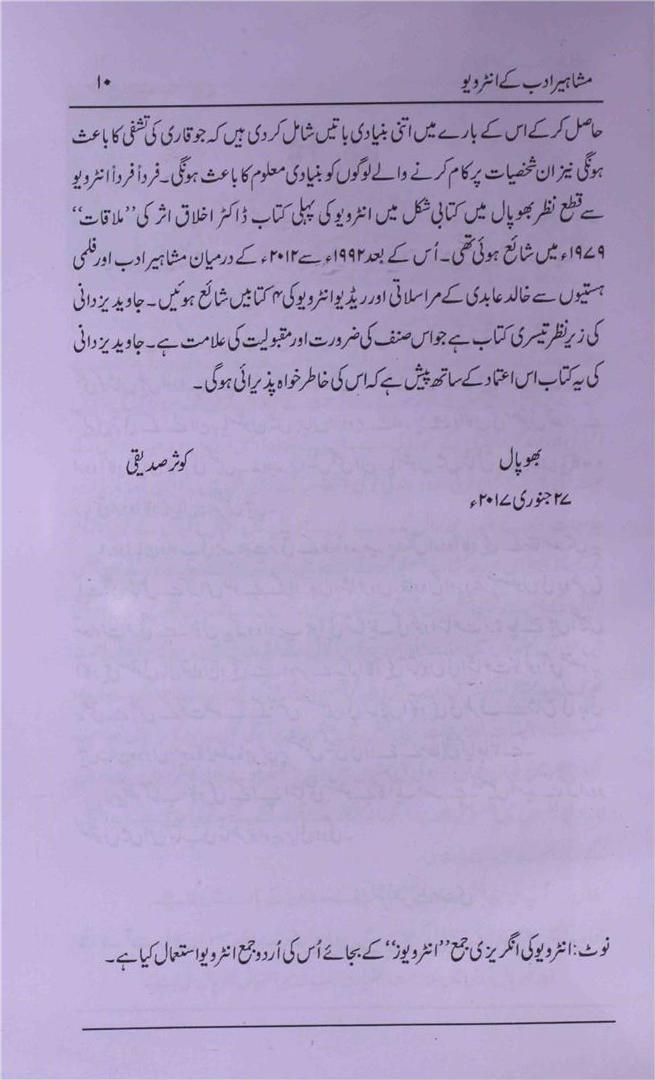 مشاہیر ادب کے انٹرویو
۱۰
حاصل کر کے اس کے بارے میں اتنی بنیادی باتیں شامل کر دی ہیں کہ جو قاری کی تشفی کا باعث
ہونگی نیز ان شخصیات پر کام کرنے والے لوگوں کو بنیادی معلوم کا باعث ہونگی۔ فرداً فرداً انٹرویو
سے قطع نظر بھوپال میں کتابی شکل میں انٹرویو کی پہلی کتاب ڈاکٹر اخلاق اثر کی ’’ملاقات‘‘
۱۹۷۹ء میں شائع ہوئی تھی۔ اُس کے بعد ۱۹۹۲ء سے ۲۰۱۲ء کے درمیان مشاہیر ادب اور فلمی
ہستیوں سے خالد عابدی کے مراسلاتی اور ریڈیو انٹرویو کی ۴ کتابیں شائع ہوئیں۔ جاوید یزدانی
کی زیر نظر تیسری کتاب ہے جو اس صنف کی ضرورت اور مقبولیت کی علامت ہے۔ جاوید یزدانی
کی یہ کتاب اس اعتماد کے ساتھ پیش ہے کہ اس کی خاطر خواہ پذیرائی ہوگی۔
بھوپال
کوثر صدیقی
۲۷ جنوری ۲۰۱۷ء
نوٹ: انٹرویو کی انگریزی جمع ’’انٹرویوز‘‘ کے بجائے اُس کی اُردو جمع انٹرویو استعمال کیا ہے۔